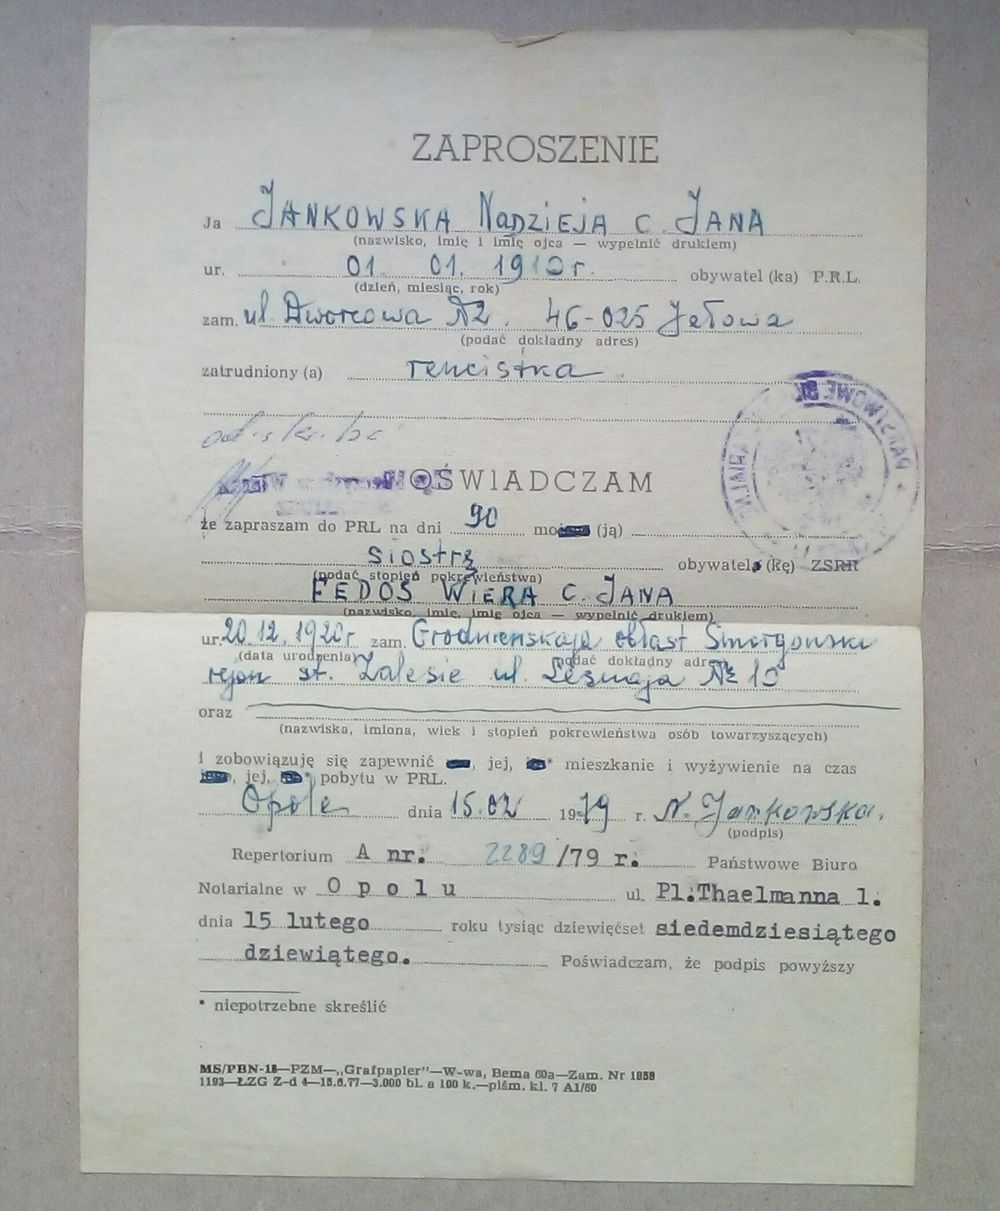 ZAPROSZENIE
Ja JANKOWSKA NADZIEJA C. JANA
(nazwisko, imię i imię ojca — wypełnić drukiem)
ur. 01 01. 1910r. obywatel (ka) P.R.L.
(dzień, miesiąc, rok)
zam. ul Dworcowa N2. 46-025 Jełowa
(podać dokładny adres)
zatrudniony (a) rencistka.
OŚWIADCZAM
że zapraszam do PRL na dni 90 mo (ją)
siostrę obywatel (kę) ZSRR
(podać stopień pokrewieństwa)
FEDOS WIERA C. JANA
(nazwisko, imię, imię ojca — wypełnić drukiem)
ur. 20.12.1920r zam. Grodnienskaja obłast Smorgonski
(data urodzenia) podać dokładny adr
rejon st. Zalesie ul. Leśnaja № 10
oraz
(nazwiska, imiona, wiek i stopień pokrewieństwa osób towarzyszących)
i zobowiązuję się zapewnić , jej, * mieszkanie i wyżywienie na czas
, jej, * pobytu w PRL.
Opole dnia 15.02 1979 r. N. Jankowska.
(podpis)
Repertorium A nr. 2289/79 r. Państwowe Biuro
Notarialne w Opolu ul. Pl.Thaelmanna 1.
dnia 15 lutego roku tysiąc dziewięćset siedemdziesiątego
dziewiątego. Poświadczam, że podpis powyższy
* niepotrzebne skreślić
MS/PBN-18—PZM—„Grafpapier”—W-wa, Bema 60a—Zam. Nr 1958
1193—ŁZG Z-d 4—15.6.77—3.000 bl. a 100 k.—piśm. kl. 7 A1/60